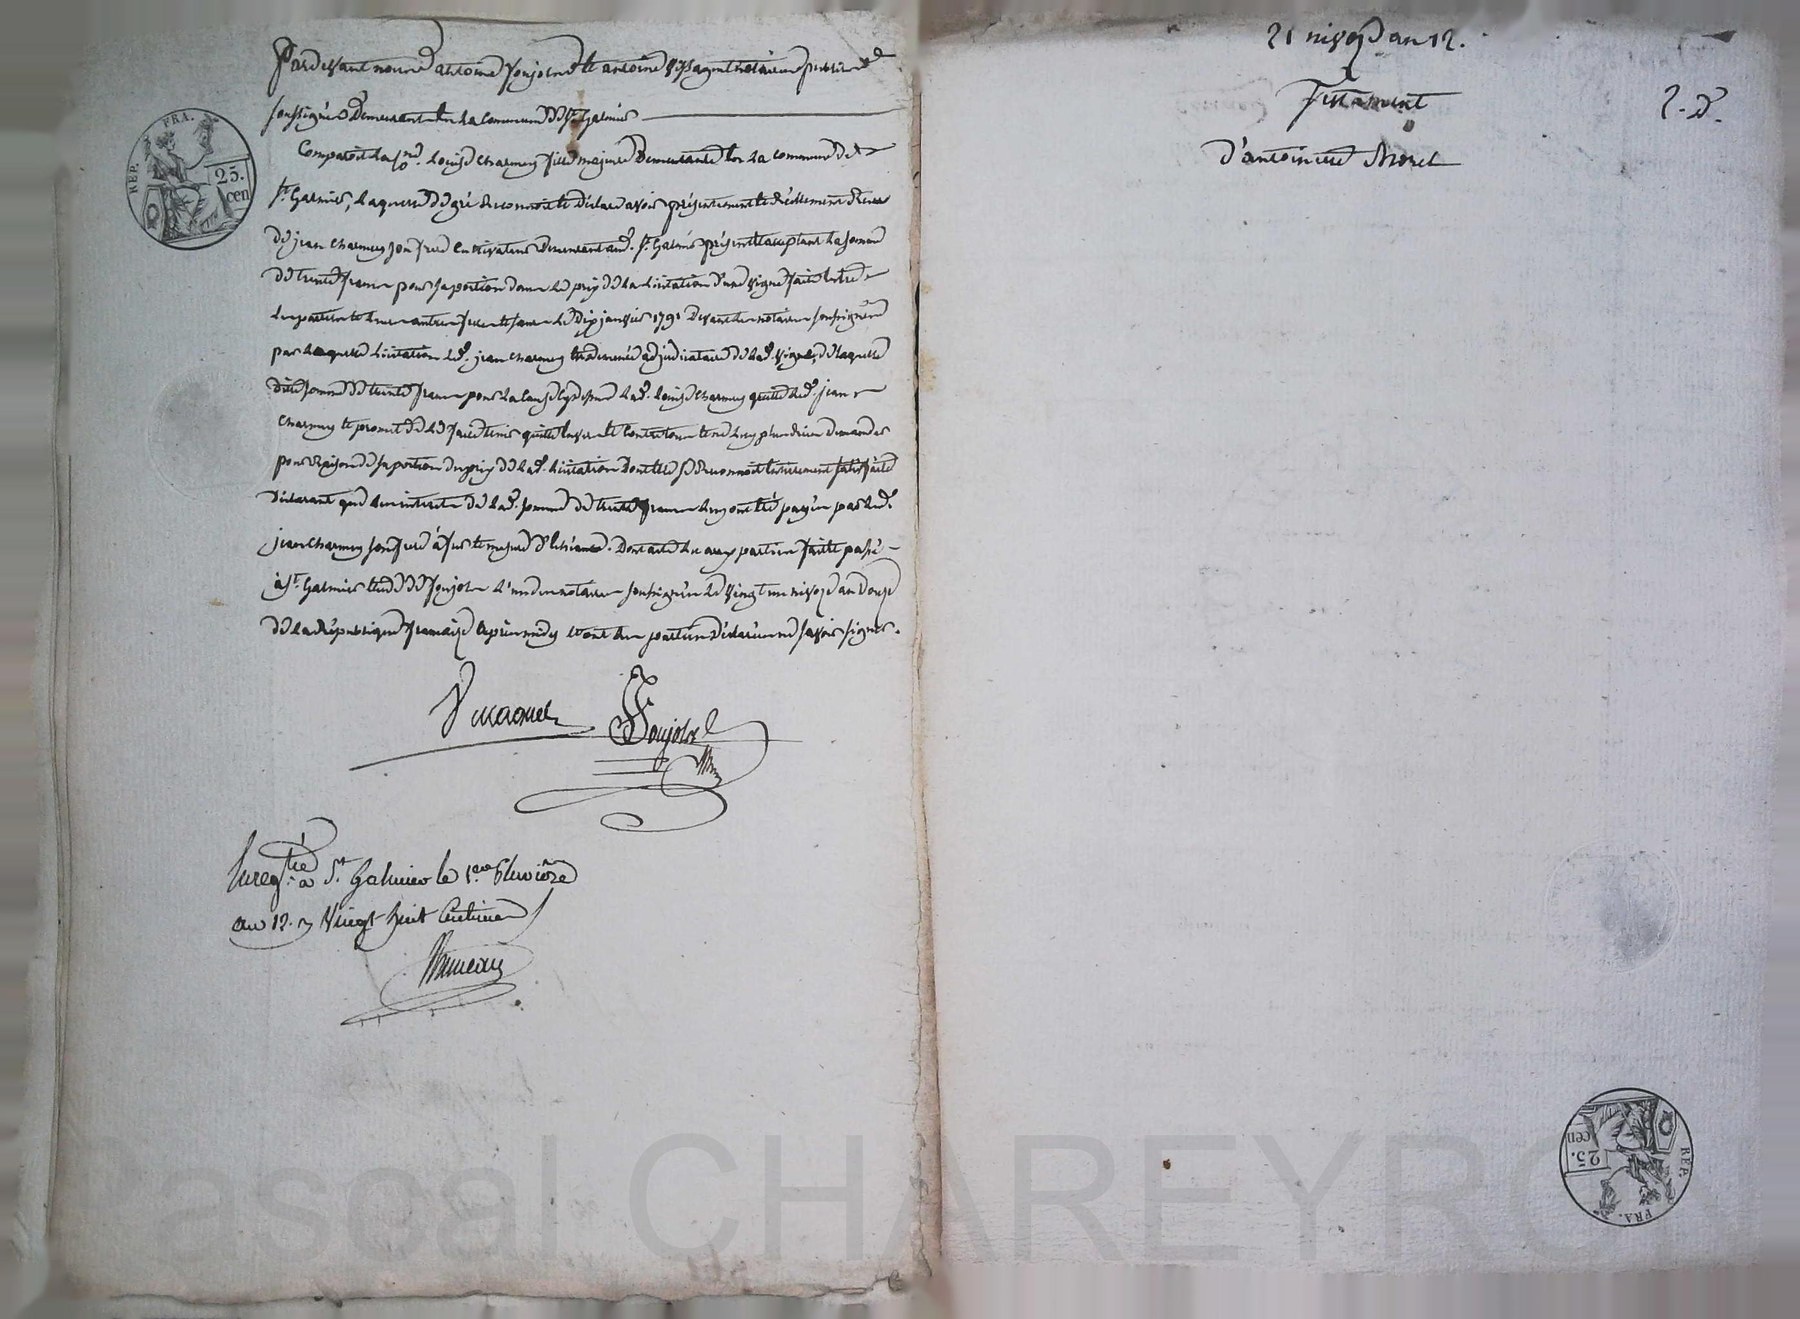 REP. FRA.
25.
cen
Pardevant nous antoine Poujol et antoine notaires publics
soussignés Demeurant en La commune de St. Galmier
Comparoit La Louise Charmey fille majeure Demeurante en La commune de
St. Galmier, Laquelle de gré Reconnoit et Déclare avoir présentement et Réellement Reçu
de jean Charmey son frere Cultivateur Demeurant aud. St. Galmier présent et acceptant La somme
de trente francs pour sa portion dans Le prix de La Licitation d'une vigne faite entre
Les parties et Leurs autres freres et sœurs Le Dix janvier 1791 Devant Les notaires soussignés
par Laquelle Licitation Led. jean Charmey est demeuré adjudicataire de Lad. vigne, de Laquelle
Dite somme de trente francs pour La cause Lad. Louise Charmey quitte Led. jean
Charmey et promet de Le faire tenir quitte envers et Contre tous et ne Luy plus Rien demander
pour Raison de sa portion du prix de Lad. Licitation Dont Elle se Reconnoit Entierement satisfaite
Déclarant que Les interets de Lad. somme de trente francs Luy ont été payés par Led.
jean Charmey son frere à fur et mesure d'Echéance. Dont acte aux parties fait et passé
à St. Galmier Etude de Poujol L'un des notaires soussignés Le vingt un nivose an Douze
de La République française après midy et ont Les parties Déclaré ne savoir signer.
Poujol
Enregtré a St. Galmier le 1er Pluviôse
an 12. Vingt huit Centimes
21 nivose an 12.
Testament
d'antoinette Morel
2. D.
REP. FRA.
25.
cen
Pascal CHAREYRON